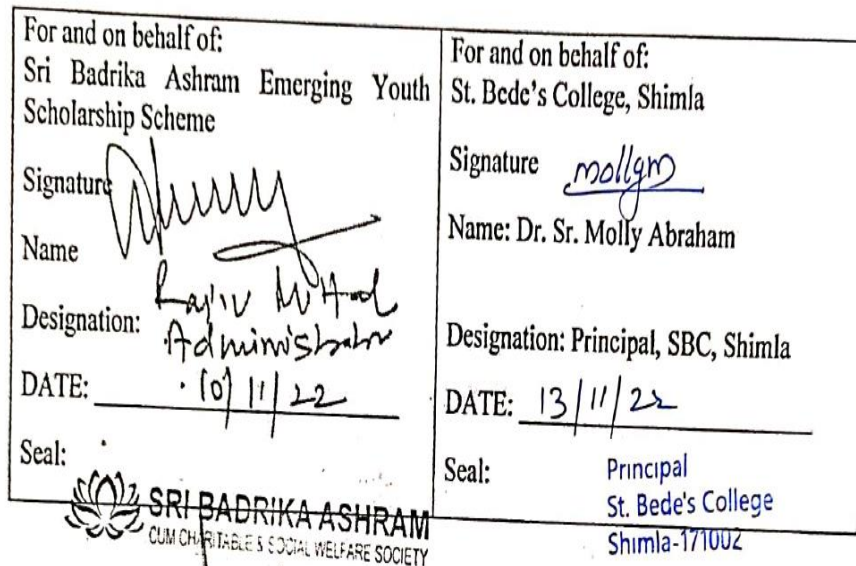 For and on behalf of:
Sri Badrika Ashram Emerging Youth
Scholarship Scheme
Signature
Name
Rajiv
Designation: Administrator
DATE: 10/11/22
Seal:
SRI BADRIKA ASHRAM
CUM CHARITABLE & SOCIAL WELFARE SOCIETY
For and on behalf of:
St. Bede's College, Shimla
Signature mollym
Name: Dr. Sr. Molly Abraham
Designation: Principal, SBC, Shimla
DATE: 13/11/22
Seal:
Principal
St. Bede's College
Shimla-171002